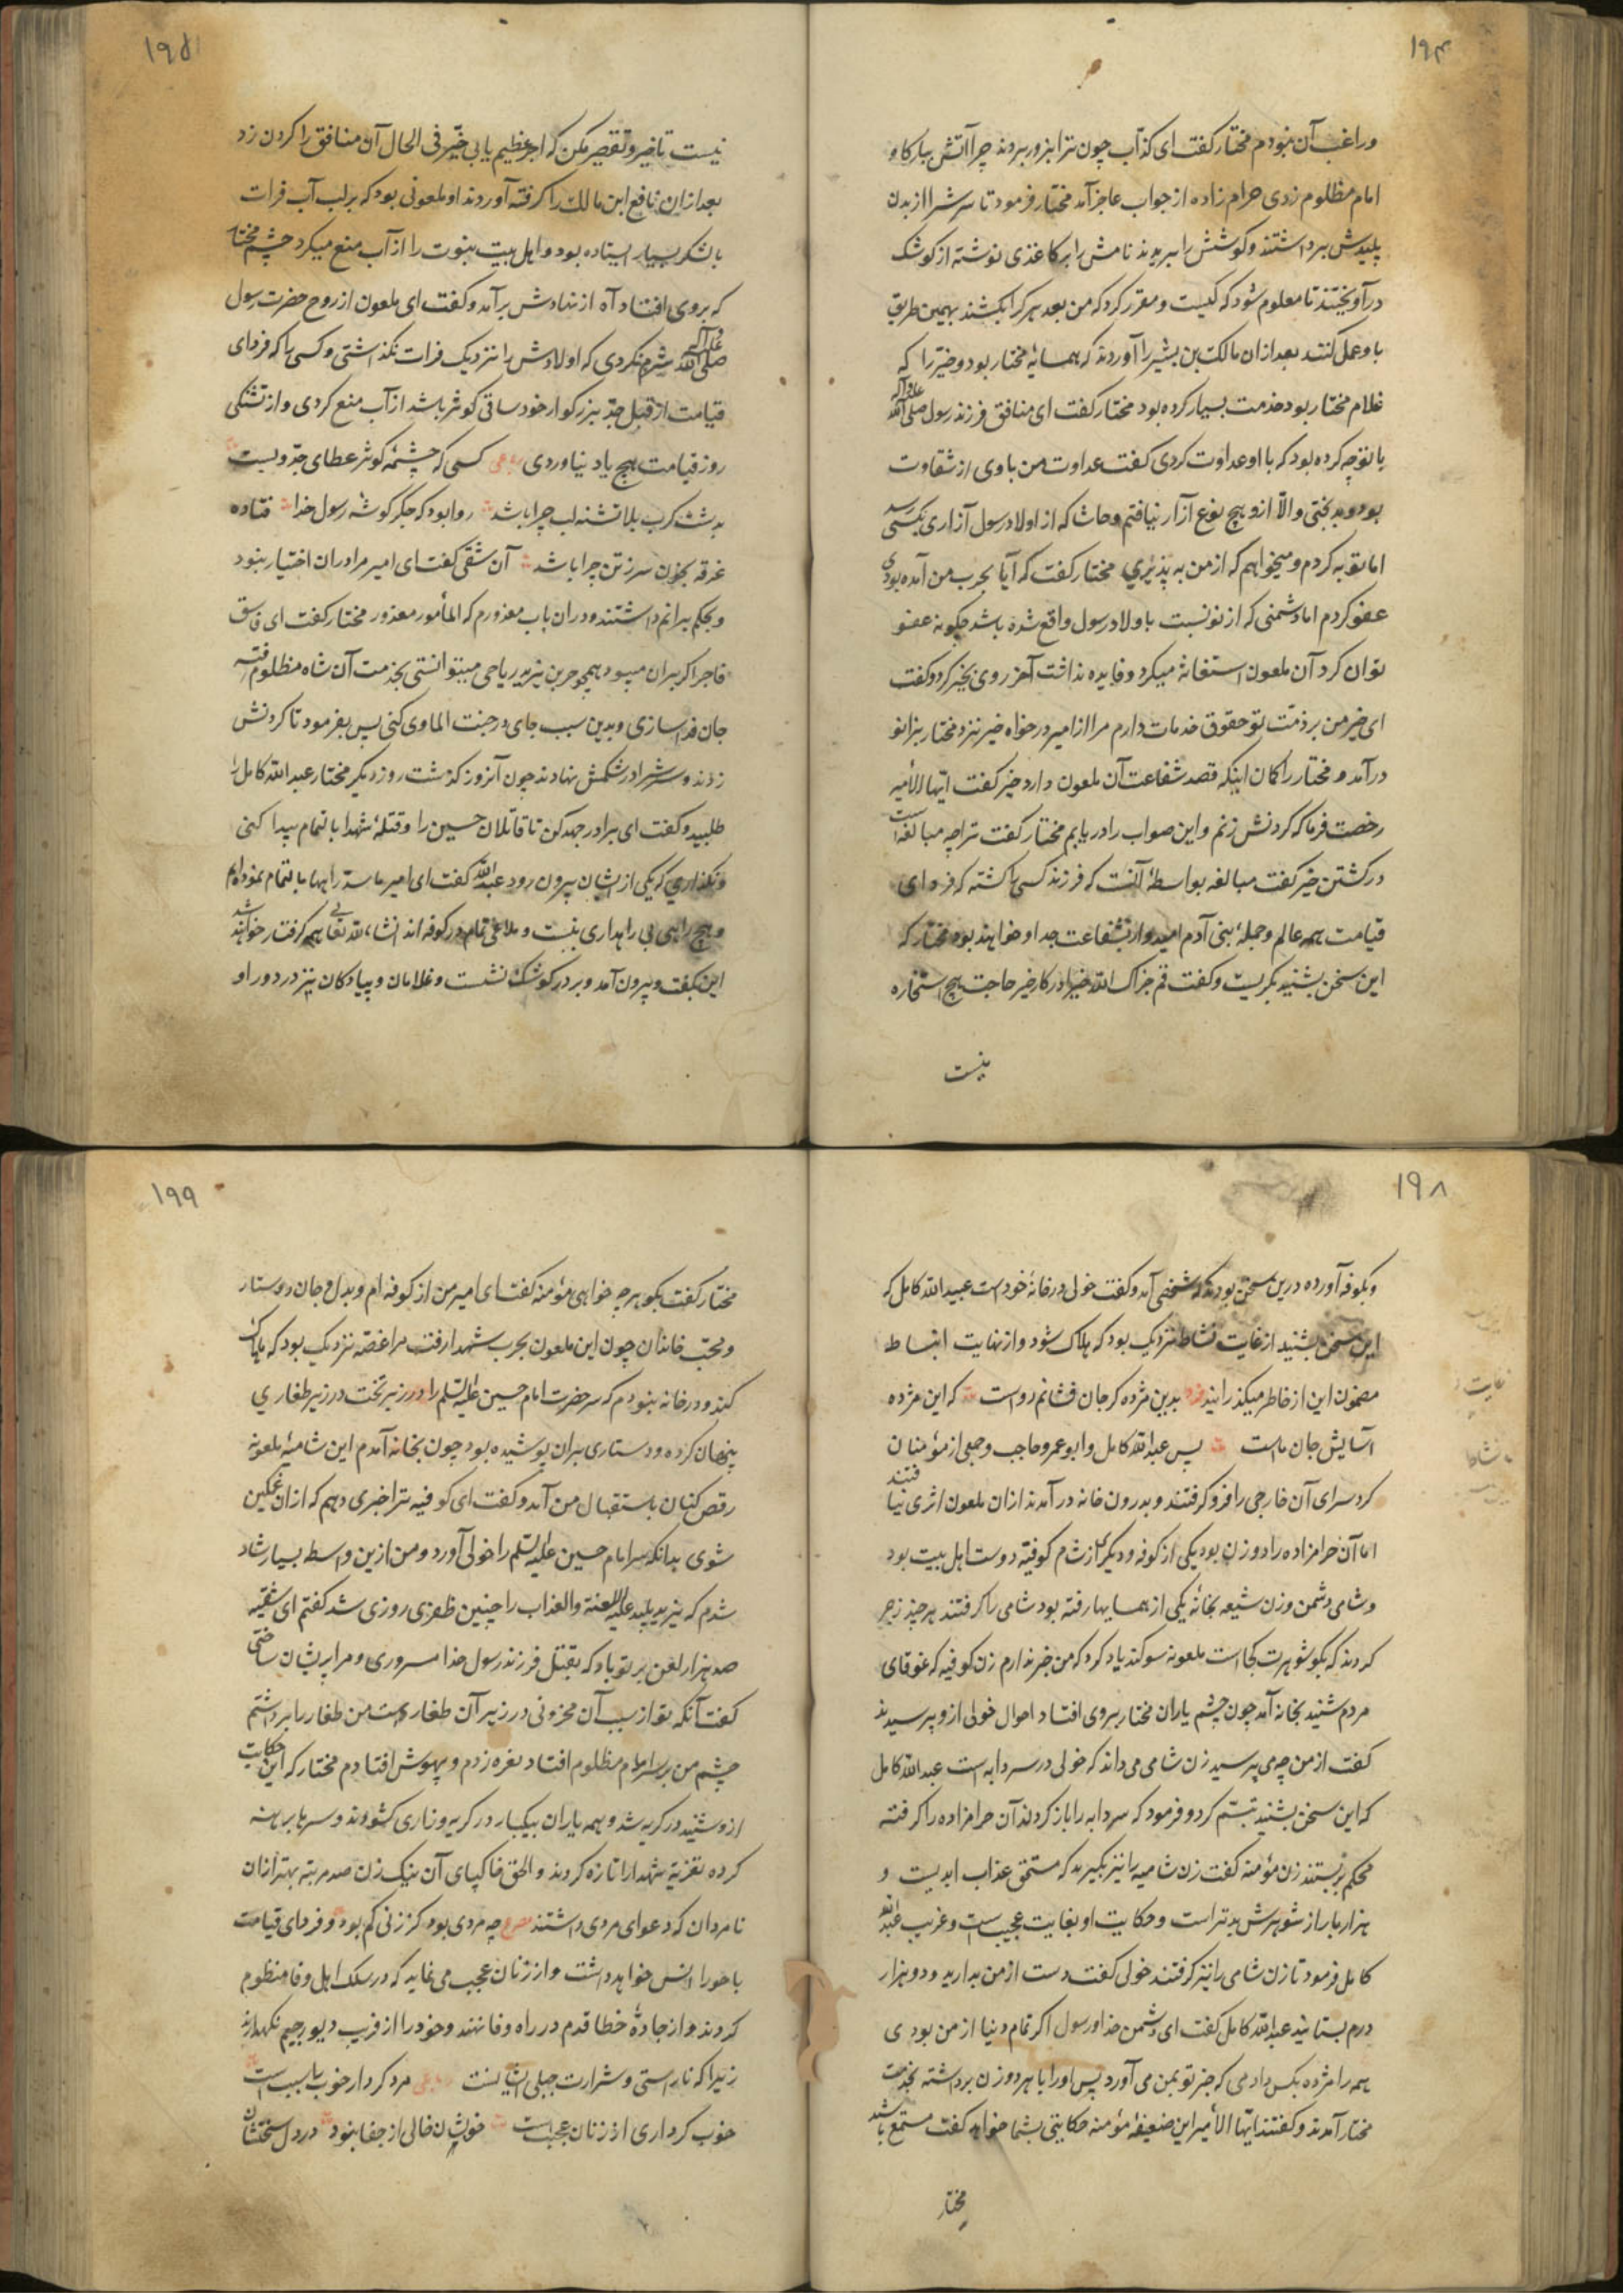 ۱۹۴
و راغب آن نبودم مختار گفت ای کذّاب چون ترا بزور بردند چرا آتش ببارکاه
امام مظلوم زدی حرام زاده از جواب عاجز آمد مختار فرمود تا سرش را از بدن
پلیدش برداشتند و کوشش را بریدند نامش را بر کاغذی نوشته از کوشک
درآویختند تا معلوم شود که کیست و مقرر کرد که من بعد هر کرا بکشند بهمین طریق
با و عمل کنند بعد از ان مالک بن بشیر را آوردند که همسایۀ مختار بود و خیّر را که
غلام مختار بود خدمت بسیار کرده بود مختار گفت ای منافق فرزند رسول صلی الله علیه و آله
با تو چه کرده بود که با او عداوت کردی گفت عداوت من با وی از شقاوت
بود و بدبختی و الّا ازو هیچ نوع آزار نیافتم و حاشا که از اولاد رسول آزاری بکسی رسد
اما توبه کردم و میخواهم که از من به پذیری مختار گفت که آیا بحرب من آمده بودی
عفو کردم اما دشمنی که از تو نسبت باولاد رسول واقع شده باشد چکونه عفو
توان کرد آن ملعون استغاثه میکرد و فایده نداشت آخر روی بخیر کرد و گفت
ای خیر من بر ذمّت تو حقوق خدمات دارم مرا از امیر درخواه خیر نزد مختار بزانو
درآمد و مختار را کمان اینکه قصد شفاعت آن ملعون دارد خیر گفت ایّها الأمیر
رخصت فرما که کردنش زنم و این صواب را دریابم مختار گفت ترا چه مبالغه است
در کشتن خیر گفت مبالغه بواسطۀ آنست که فرزند کسی را کشته که فردای
قیامت همه عالم و جملۀ بنی آدم امیدوار بشفاعت جد او خواهند بود مختار که
این سخن بشنید بگریست و گفت قم جزاک الله خیرا در کار خیر حاجت هیچ استخاره
نیست
۱۹۵
نیست تاخیر و تقصیر مکن که اجر عظیم یابی خیّر فی الحال آن منافق را کردن زد
بعد از ان نافع ابن مالک را کرفته آوردند او ملعونی بود که بر لب آب فرات
با لشکر بسیار ایستاده بود و اهل بیت نبوت را از آب منع میکرد چشم مختار
که بروی افتاد آه از نهادش برآمد و گفت ای ملعون از روح حضرت رسول
صلی الله علیه و آله شرم نکردی که اولادش را نزدیک فرات نکذاشتی و کسی را که فردای
قیامت از قبل جدّ بزرکوار خود ساقی کوثر باشد از آب منع کردی و از تشنکی
روز قیامت هیچ یاد نیاوردی رباعی کسی که چشمۀ کوثر عطای جدّ ویست
بدشت کرب بلا تشنه لب چرا باشد روا بود که جکر کوشۀ رسول خدا فتاده
غرقه بخون سر ز تن جرا باشد آن شقی گفت ای امیر مرا در ان اختیار نبود
و بحکم برانم داشتند و در ان باب معذورم که المأمور معذور مختار گفت ای فاسق
فاجر اکر بران میبود همچو حر بن یزید ریاحی میتوانستی بخدمت آن شاه مظلوم رفته
جان فدا سازی و بدین سبب جای در جنت الماوی کنی پس بفرمود تا کردنش
زدند و سرش را در شکمش نهادند چون آنروز کذشت روز دیکر مختار عبد الله کامل را
طلبید و گفت ای برادر جهد کن تا قاتلان حسین را و قتلۀ شهدا با تمام پیدا کنی
و نکذاری که یکی از ایشان بیرون رود عبد الله گفت ای امیر ما سد راهها بالتمام نموده ایم
و هیچ راهی بی راهداری نیست و ملاعین تمام در کوفه اند انشاء الله تعالی همه کرفتار خواهند شد
این بگفت و بیرون آمد و بر در کوشک نشست و غلامان و پیادکان نیز در دور او
۱۹۸
و بکوفه آورده درین سخن بودند که شخصی آمد و گفت خولی در خانۀ خود است عبید الله کامل که
این سخن بشنید از غایت نشاط نزدیک بود که هلاک شود و از نهایت انبساط
مضمون این از خاطر میکذرانید فرد بدین مژده کر جان فشانم رواست که این مژده
آسایش جان ماست پس عبد الله کامل و ابو عمرو حاجب و جمعی از مؤمنان
کرد سرای آن خارجی را فرو کرفتند و بدرون خانه درآمدند از ان ملعون اثری نیافتند
اما آن حرامزاده را دو زن بود یکی از کوفه و دیکری از شام کوفیّه دوست اهل بیت بود
و شامی دشمن و زن شیعه بخانۀ یکی از همسایها رفته بود شامی را کرفتند هر چند زجر
کردند که بکو شوهرت کجاست ملعونه سوکند یاد کرد که من خبر ندارم زن کوفیه که غوغای
مردم شنید بخانه آمد چون چشم یاران مختار بروی افتاد احوال خولی ازو پرسیدند
گفت از من چه می پرسید زن شامی می داند که خولی در سردابه است عبد الله کامل
که این سخن بشنید تبسّم کرد و فرمود که سردابه را باز کردند آن حرامزاده را کرفته
محکم بر بستند زن مؤمنه گفت زن شامیه را نیز بکیرید که مستحق عذاب ابدیست و
هزار بار از شوهرش بدتر است و حکایت او بغایت عجیب است و غریب عبد الله
کامل فرمود تا زن شامی را نیز کرفتند خولی گفت دست از من بدارید و دو هزار
درم بستانید عبد الله کامل گفت ای دشمن خدا و رسول اکر تمام دنیا از من بودی
همه را مژده بکس دادمی که خبر تو بمن می آورد پس او را با هر دو زن برداشته بخدمت
مختار آمدند و گفتند ایّها الأمیر این ضعیفۀ مؤمنه حکایتی بشما خواهد گفت مستمع باشید
مختار
غایت
نشاط
۱۹۹
مختار گفت بکو هر چه خواهی مؤمنه گفت ای امیر من از کوفه ام و بدل و جان دوستدار
و محبّ خاندان چون این ملعون بحرب شهدا رفت مرا غصّه نزدیک بود که هلاک
کند و در خانه نبودم که سر حضرت امام حسین علیه السّلم را در زیر تخت در زیر طغاری
پنهان کرده و دستاری بران پوشیده بود چون بخانه آمدم این شامیۀ ملعونه
رقص کنان باستقبال من آمد و گفت ای کوفیه ترا خبری دهم که از ان غمکین
شوی بدانکه سر امام حسین علیه السّلم را خولی آورد و من ازین واسطه بسیار شاد
شدم که یزید پلید علیه اللعنة و العذاب را چنین ظفری روزی شد گفتم ای شقیّه
صد هزار لعن بر تو باد که بقتل فرزند رسول خدا مسروری و مرا پریشان ساختی
گفت آنکه تو از سبب آن محزونی در زیر آن طغار است من طغار را برداشتم
چشم من بر سر امام مظلوم افتاد نعره زدم و بیهوش افتادم مختار که این حکایت
ازو شنید در کریه شد و همه یاران بیکبار در کریه و زاری کشودند و سرها برهنه
کرده تعزیۀ شهدا را تازه کردند و الحق خاکپای آن نیک زن صد مرتبه بهتر از ان
نامردان که دعوای مردی داشتند مصرع چه مردی بود کز زنی کم بود و فردای قیامت
با حورا انس خواهد داشت و از زنان عجب می نماید که در سلک اهل وفا منظوم
کردند و از جادۀ خطا قدم در راه وفا نهند و خود را از فریب دیو رجیم نکهدارند
زیرا که ناراستی و شرارت جبلی ایشانست رباعی مرد کردار خوب با سبب است
خوب کرداری از زنان عجب است خویشان خالی از جفا نبود در دل سختشان